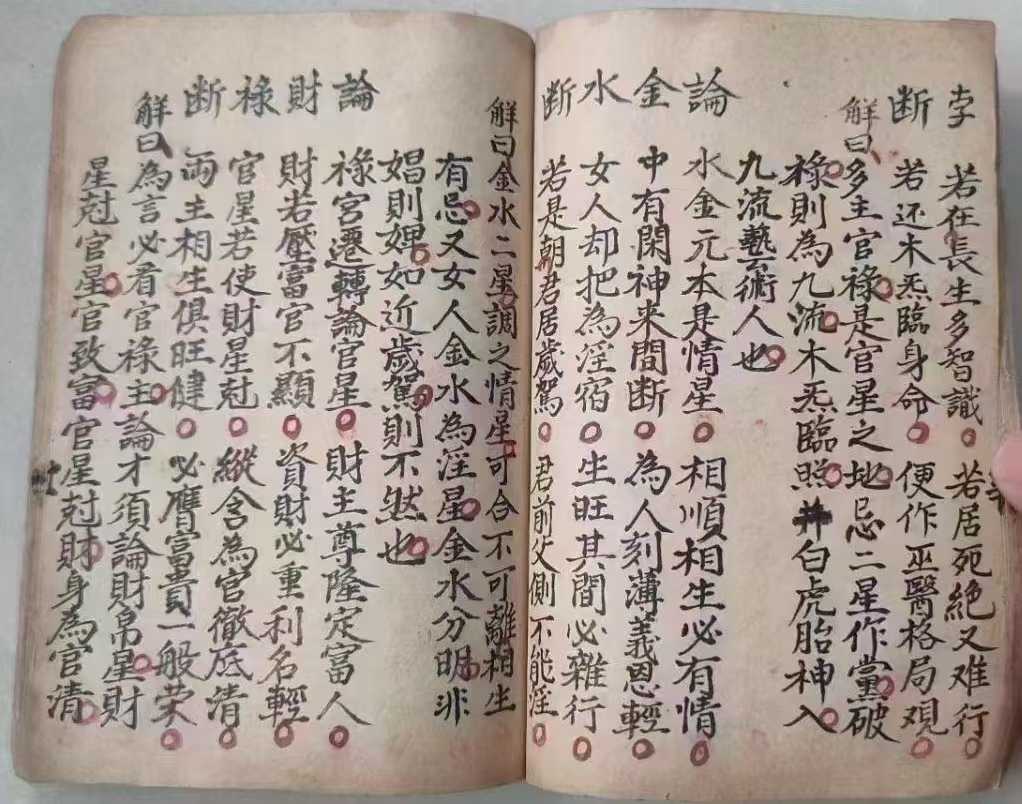 孛
若在長生多智識 若居死絕又难行
断
若还木炁臨身命 便作巫醫格局观
解曰多主官祿是官星之地忌二星作黨破
祿則為九流木炁臨照 白虎胎神入
九流藝術人也
論金水断
水金元本是情星 相順相生必有情
中有閑神来間断 為人刻薄義恩輕
女人却把為淫宿 生旺其間必雜行
若是朝君居歲駕 君前父側不能淫
解曰金水二星謂之情星可合不可離相生
有忌又女人金水為淫星金水分明非
娼則婢如近歲駕則不然也
論財祿断
祿宮遷轉論官星 財主尊隆定富人
財若壓富官不顯 資財必重利名輕
官星若使財星尅 縱含為官徹底清
両主相生俱旺健 必膺富貴一般荣
解曰為言必看官祿主論才須論財帛星財
星尅官星官致富官星尅財身為官清